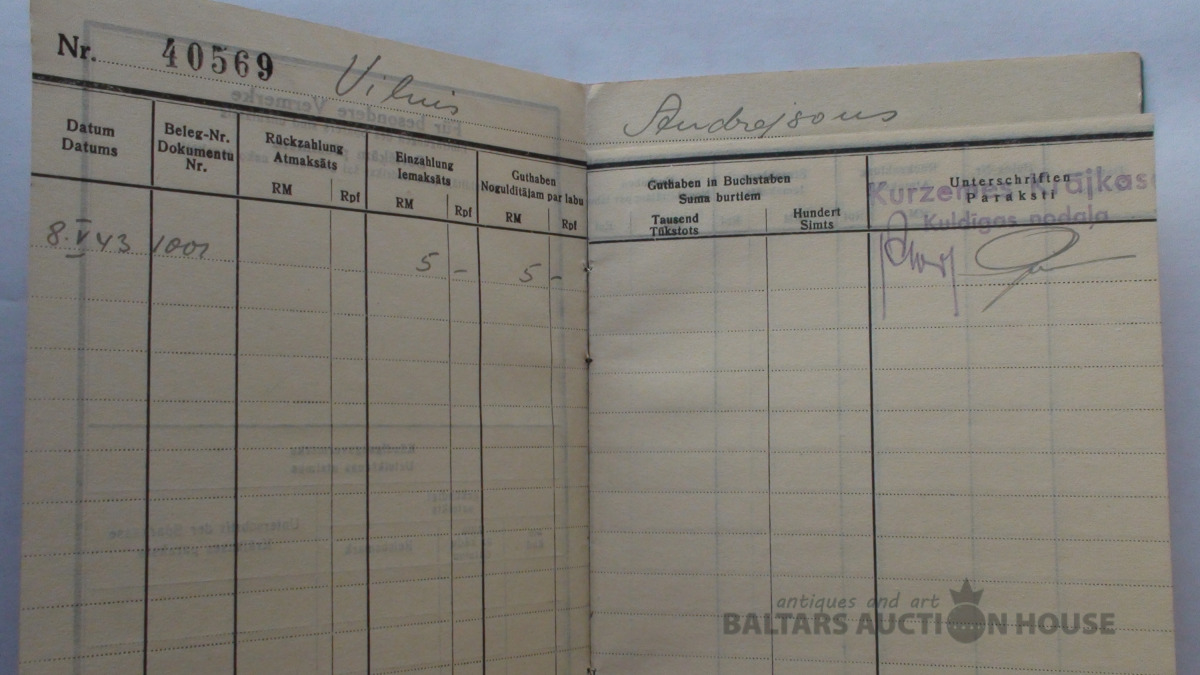 Nr. 40569 Vilnis Andrejsons
Datum
Datums
Beleg-Nr.
Dokumentu
Nr.
Rückzahlung
Atmaksāts
RM Rpf
Einzahlung
Iemaksāts
RM Rpf
Guthaben
Noguldītājam par labu
RM Rpf
Guthaben in Buchstaben
Suma burtiem
Tausend
Tūkstots
Hundert
Simts
Unterschriften
Paraksti
Kurzemes Krājkase
Kuldīgas nodaļa
8. V 43 1001 5 - 5 -
Für besondere Vermerke
Unterschrift der Sparkasse
antiques and art
BALTARS AUCTION HOUSE